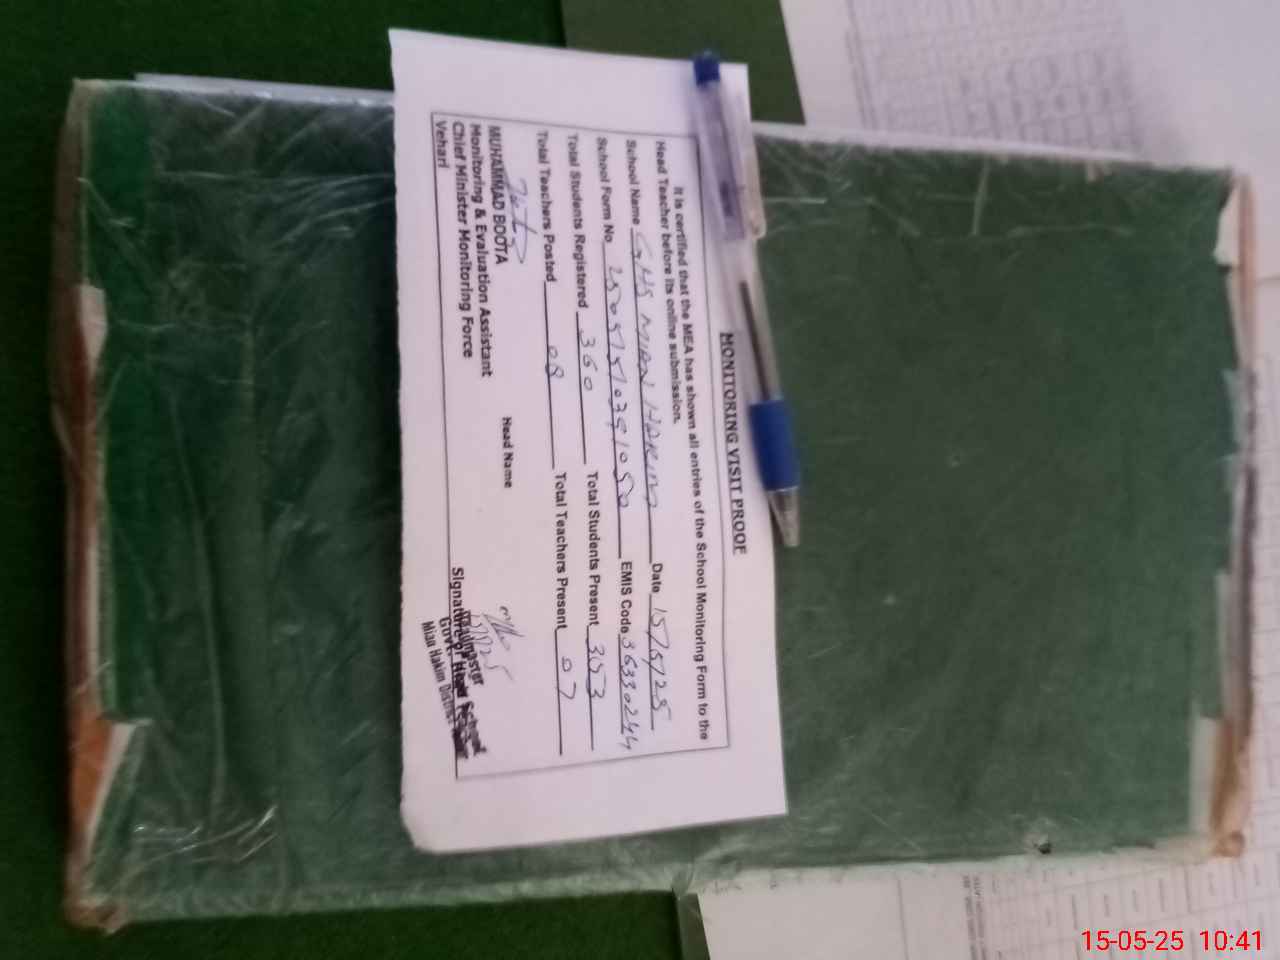 MONITORING VISIT PROOF
It is certified that the MEA has shown all entries of the School Monitoring Form to the
Head Teacher before its online submission.
School Name GHS MIAN HAKIM Date 15/5/25
School Form No. EMIS Code 36330244
Total Students Registered 360 Total Students Present 353
Total Teachers Posted 08 Total Teachers Present 07
MUHAMMAD BOOTA Head Name
Monitoring & Evaluation Assistant
Chief Minister Monitoring Force
Vehari
Signature of Head
Headmaster
Govt. High School
Mian Hakim District
15-05-25 10:41